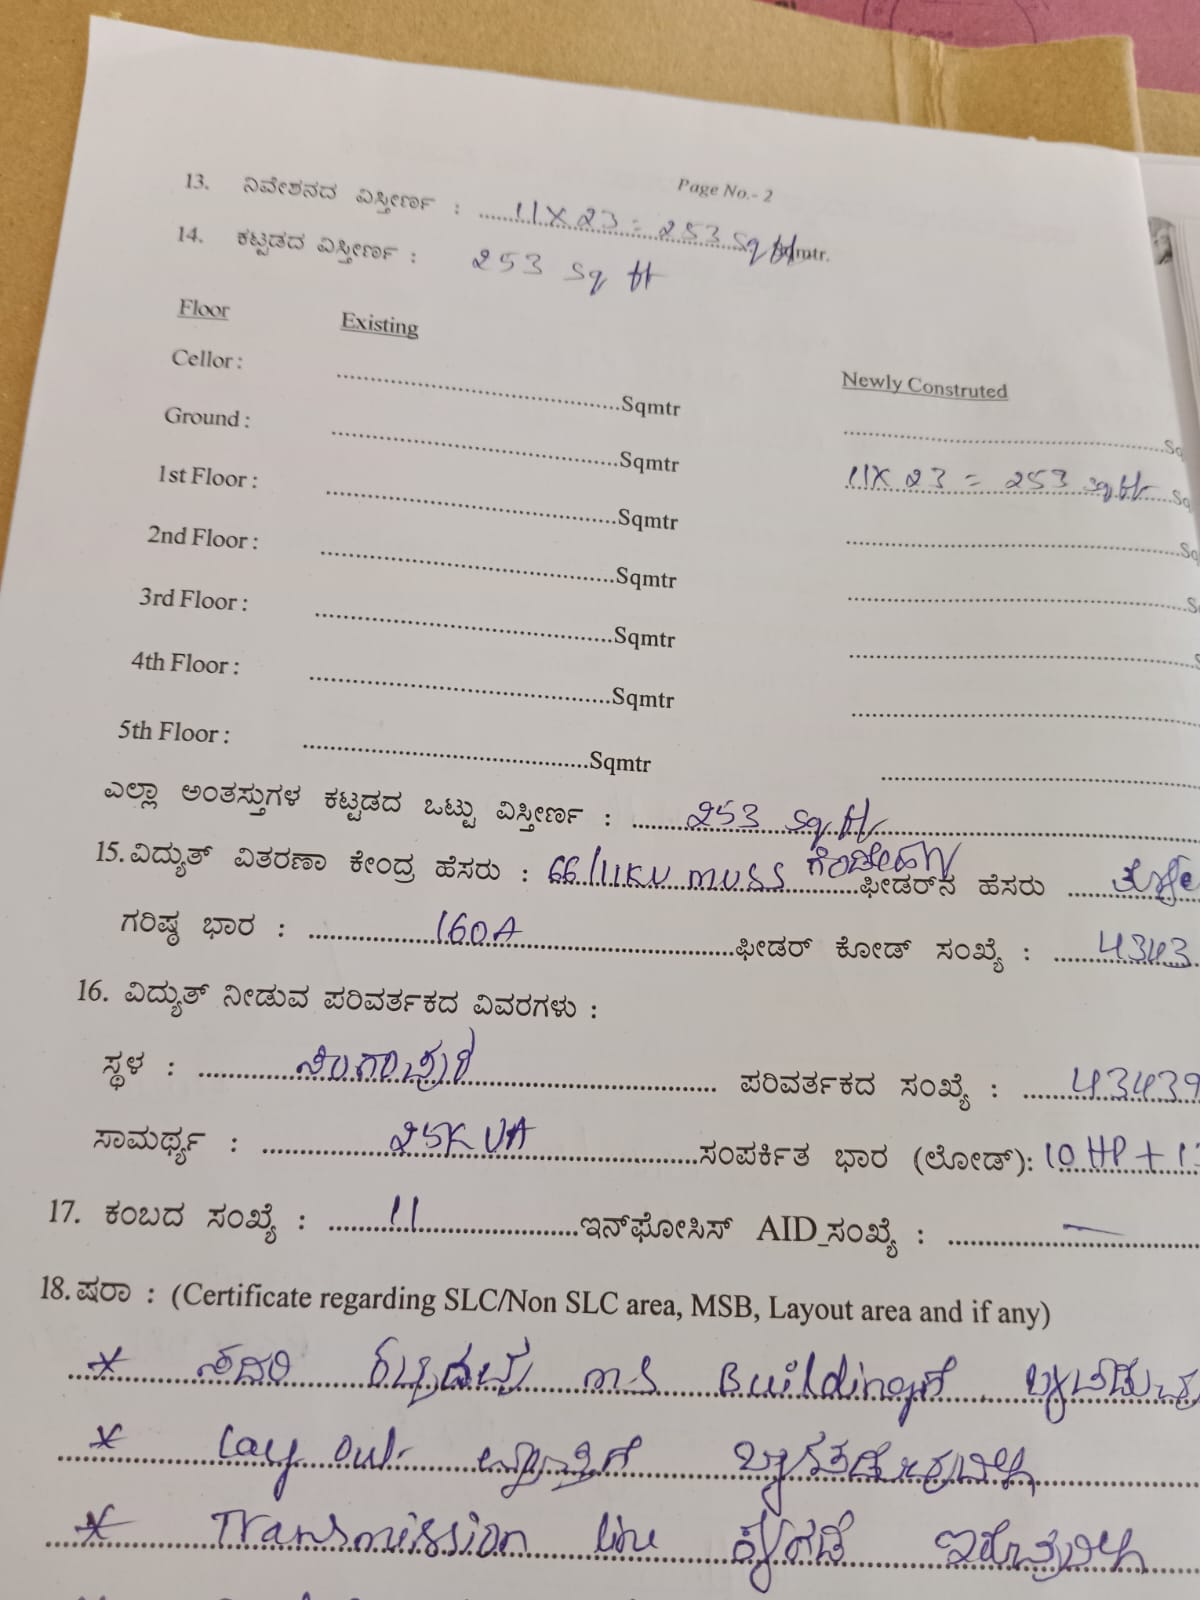 Page No.- 2
13. ನಿವೇಶನದ ವಿಸ್ತೀರ್ಣ : 11 X 23 = 253 Sq ft
14. ಕಟ್ಟಡದ ವಿಸ್ತೀರ್ಣ : 253 Sq ft
Floor Existing Newly Construted
Cellor : ..........Sqmtr
Ground : ..........Sqmtr 11 X 23 = 253 sq ft
1st Floor : ..........Sqmtr
2nd Floor : ..........Sqmtr
3rd Floor : ..........Sqmtr
4th Floor : ..........Sqmtr
5th Floor : ..........Sqmtr
ಎಲ್ಲಾ ಅಂತಸ್ತುಗಳ ಕಟ್ಟಡದ ಒಟ್ಟು ವಿಸ್ತೀರ್ಣ : 253 Sq ft
15. ವಿದ್ಯುತ್ ವಿತರಣಾ ಕೇಂದ್ರ ಹೆಸರು : 66/11KV MUSS ಫೀಡರ್‌ನ ಹೆಸರು
ಗರಿಷ್ಠ ಭಾರ : 160A ಫೀಡರ್ ಕೋಡ್ ಸಂಖ್ಯೆ : 4343
16. ವಿದ್ಯುತ್ ನೀಡುವ ಪರಿವರ್ತಕದ ವಿವರಗಳು :
ಸ್ಥಳ : ಸಿಂಗಾಪುರ ಪರಿವರ್ತಕದ ಸಂಖ್ಯೆ : 43439
ಸಾಮರ್ಥ್ಯ : 25KVA ಸಂಪರ್ಕಿತ ಭಾರ (ಲೋಡ್): 10 HP +
17. ಕಂಬದ ಸಂಖ್ಯೆ : 11 ಇನ್‌ಫೋಸಿಸ್ AID_ಸಂಖ್ಯೆ : —
18. ಷರಾ : (Certificate regarding SLC/Non SLC area, MSB, Layout area and if any)
* ಸದರಿ ಕಟ್ಟಡವು MS Buildingಗೆ
* Lay out ವ್ಯಾಪ್ತಿಗೆ
* Transmission line ಕೆಳಗಡೆ ಇರುವುದಿಲ್ಲ